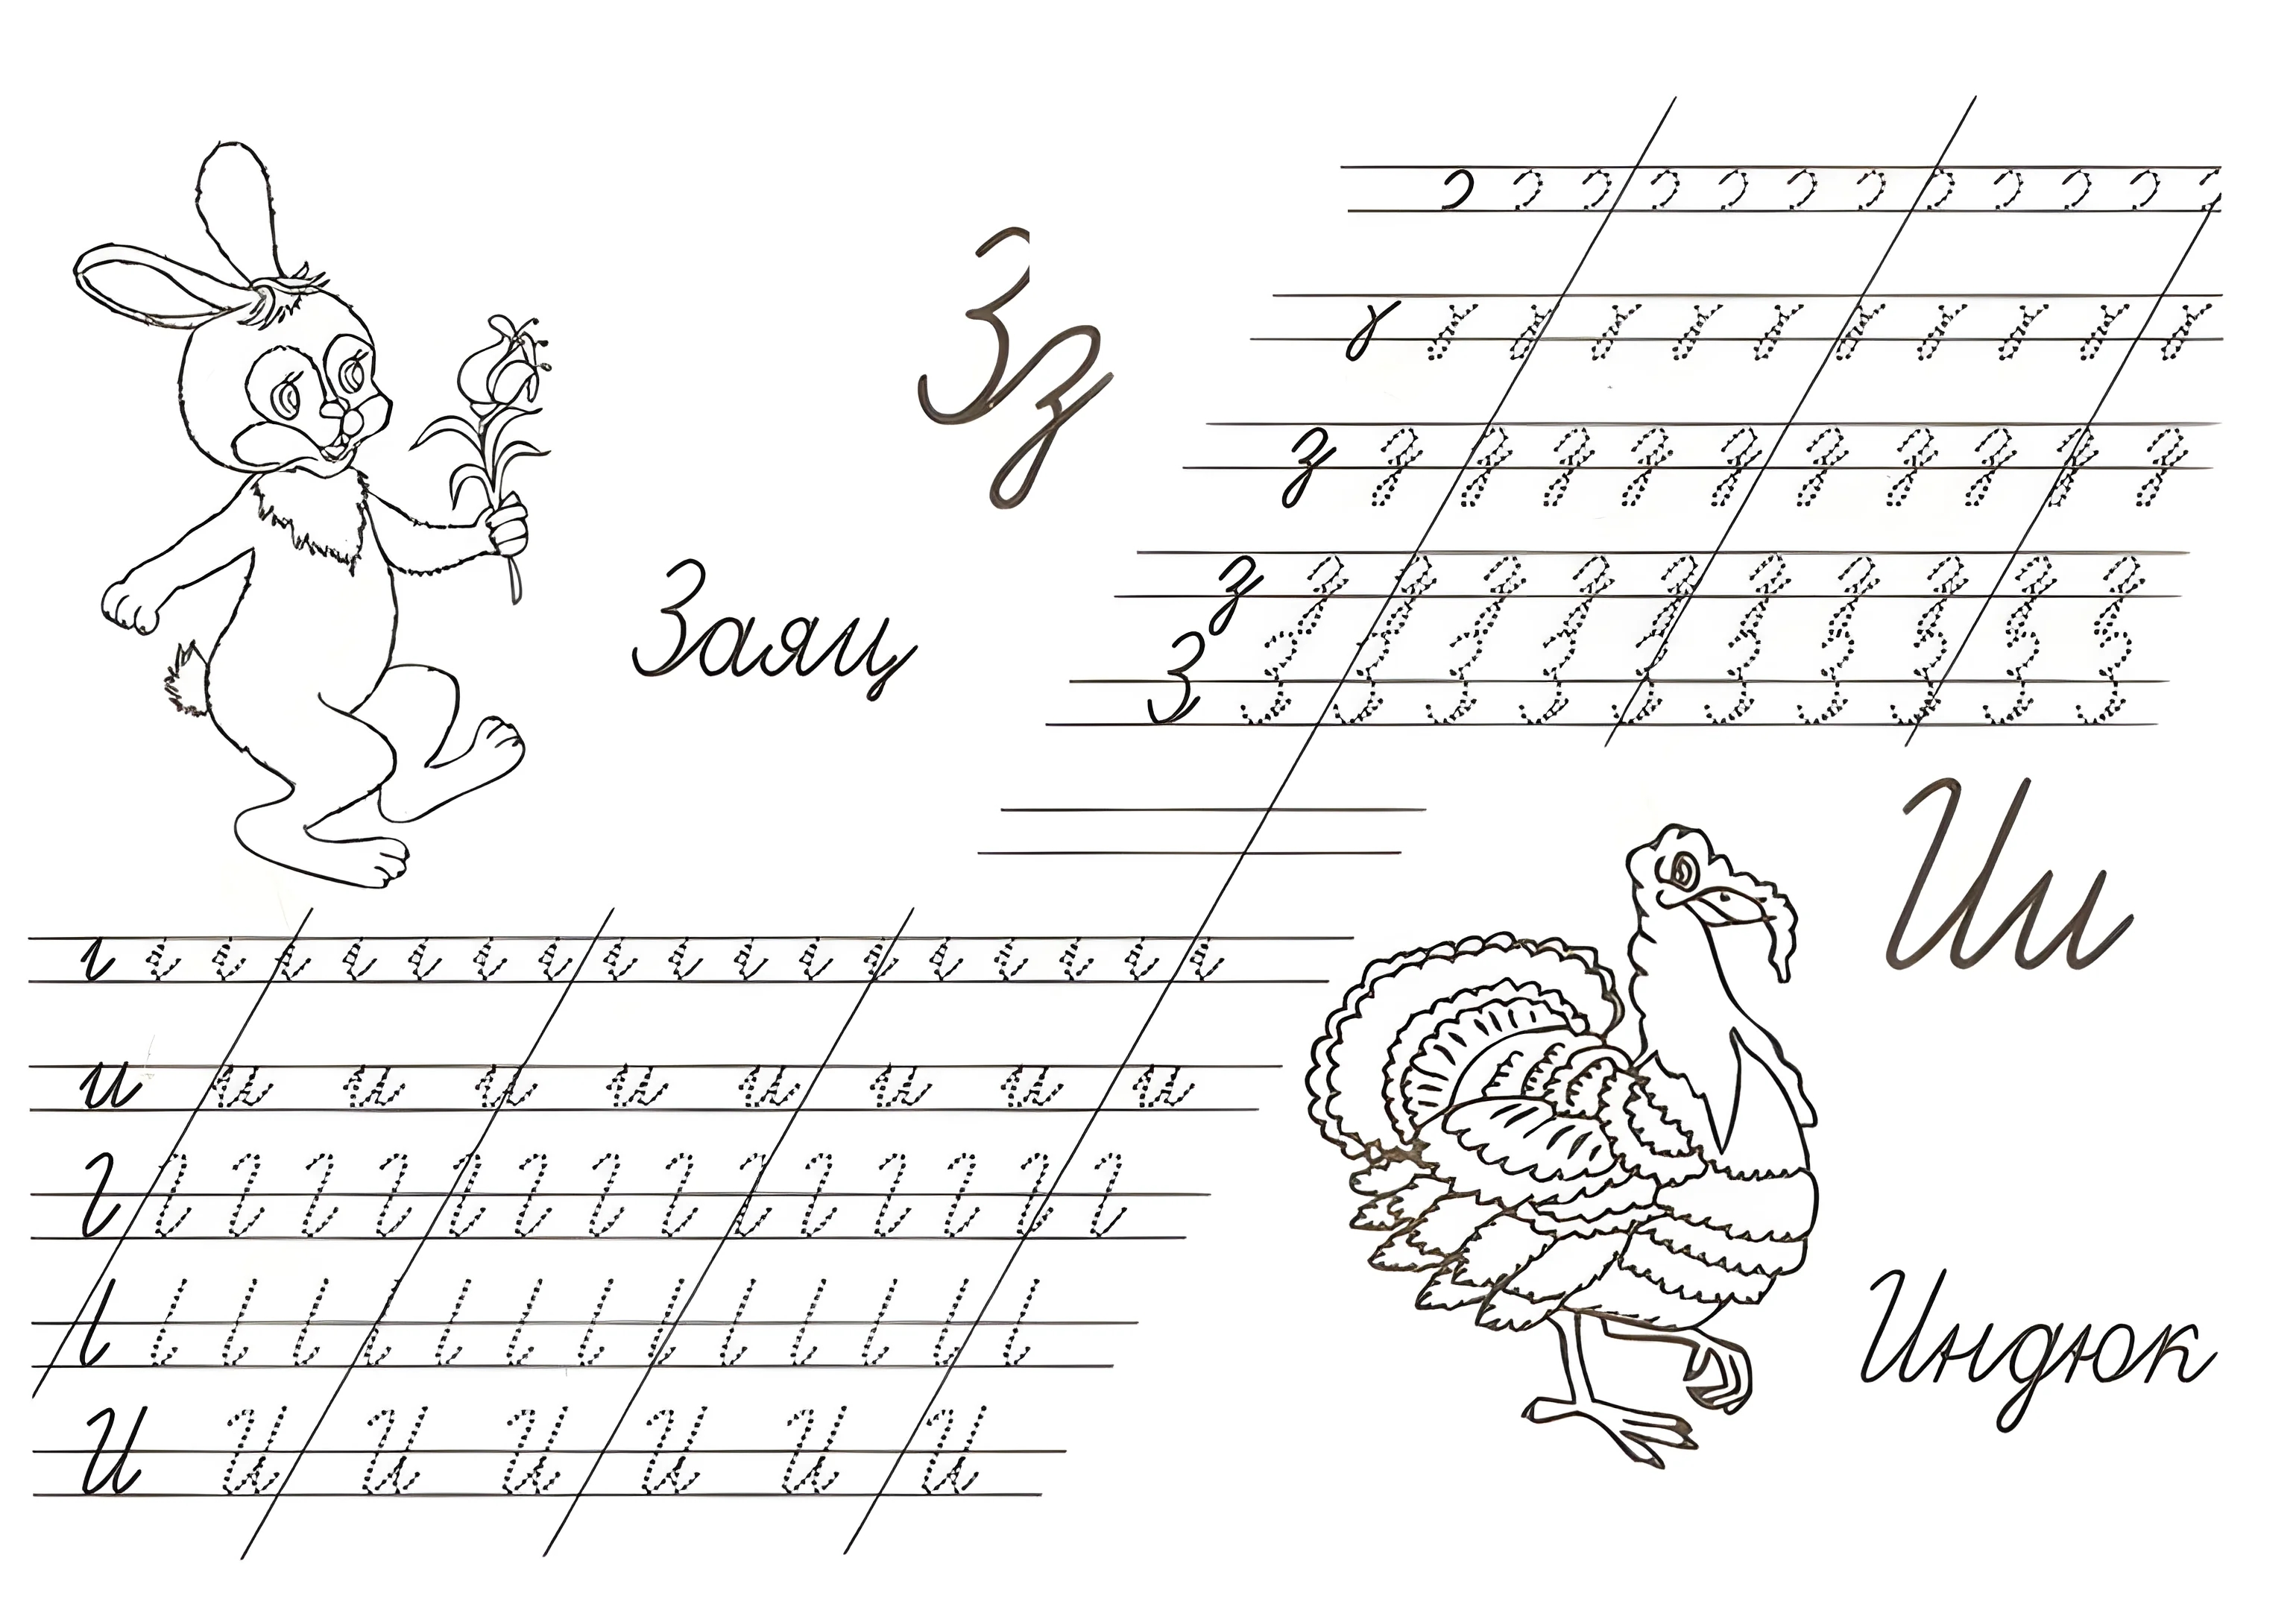 Зз
Заяц
з з з з з з з з з з з
з з з з з з з з з з з
З З З З З З З З З З З
Ии
и и и и и и и и и
И И И И И И И
Индюк